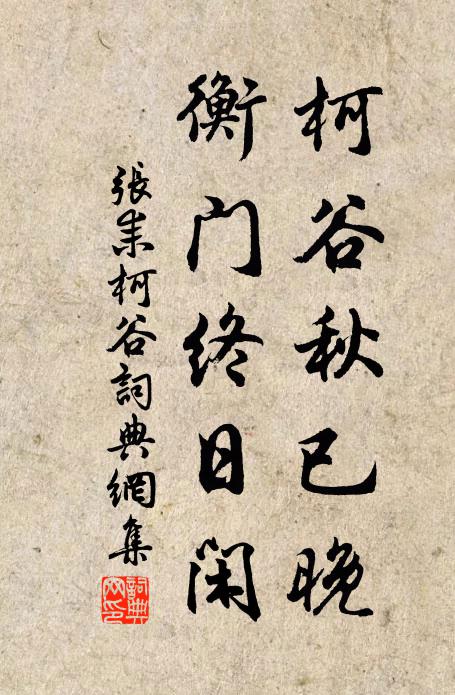 柯谷秋已晚
衡门终日闲
張耒柯谷詞典網集
詞典網印